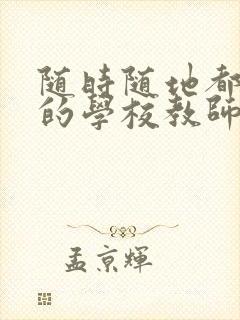 随時随地都
的學校教師
孟京輝